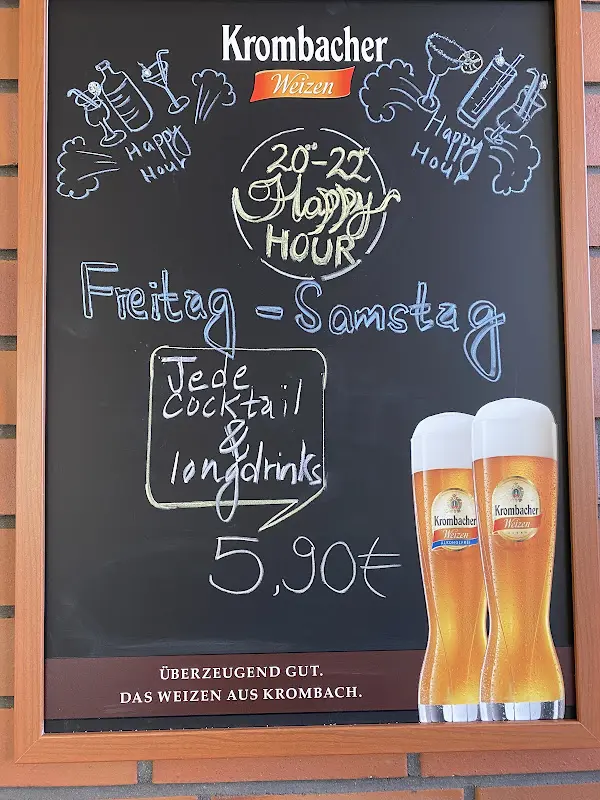 Krombacher
Weizen
Happy
Hour
Happy
Hour
20⁰⁰-22⁰⁰
Happy
HOUR
Freitag - Samstag
Jede
cocktail
&
longdrinks
5,90€
Krombacher
Weizen
ALKOHOLFREI
Krombacher
Weizen
ÜBERZEUGEND GUT.
DAS WEIZEN AUS KROMBACH.